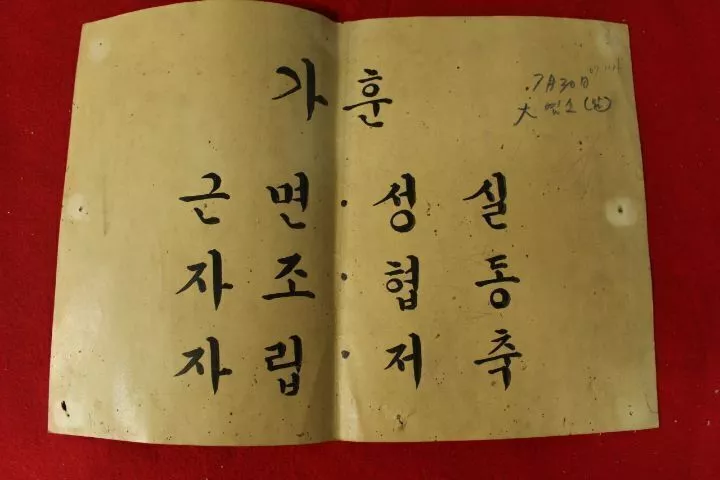 가훈
7月30日
大
근면·성실
자조·협동
자립·저축